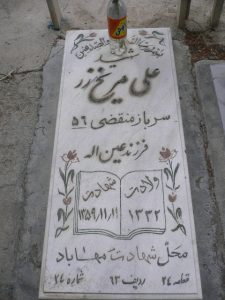 شهید
علی میرنخ زر
سرباز منقضی ۵۶
فرزند عین اله
ولادت
۱۳۳۲
شهادت
۱۳۵۹,۱۱,۱۱
محل شهادت مهاباد
قطعه ۲۴ ردیف ۶۳ شماره ۲۴